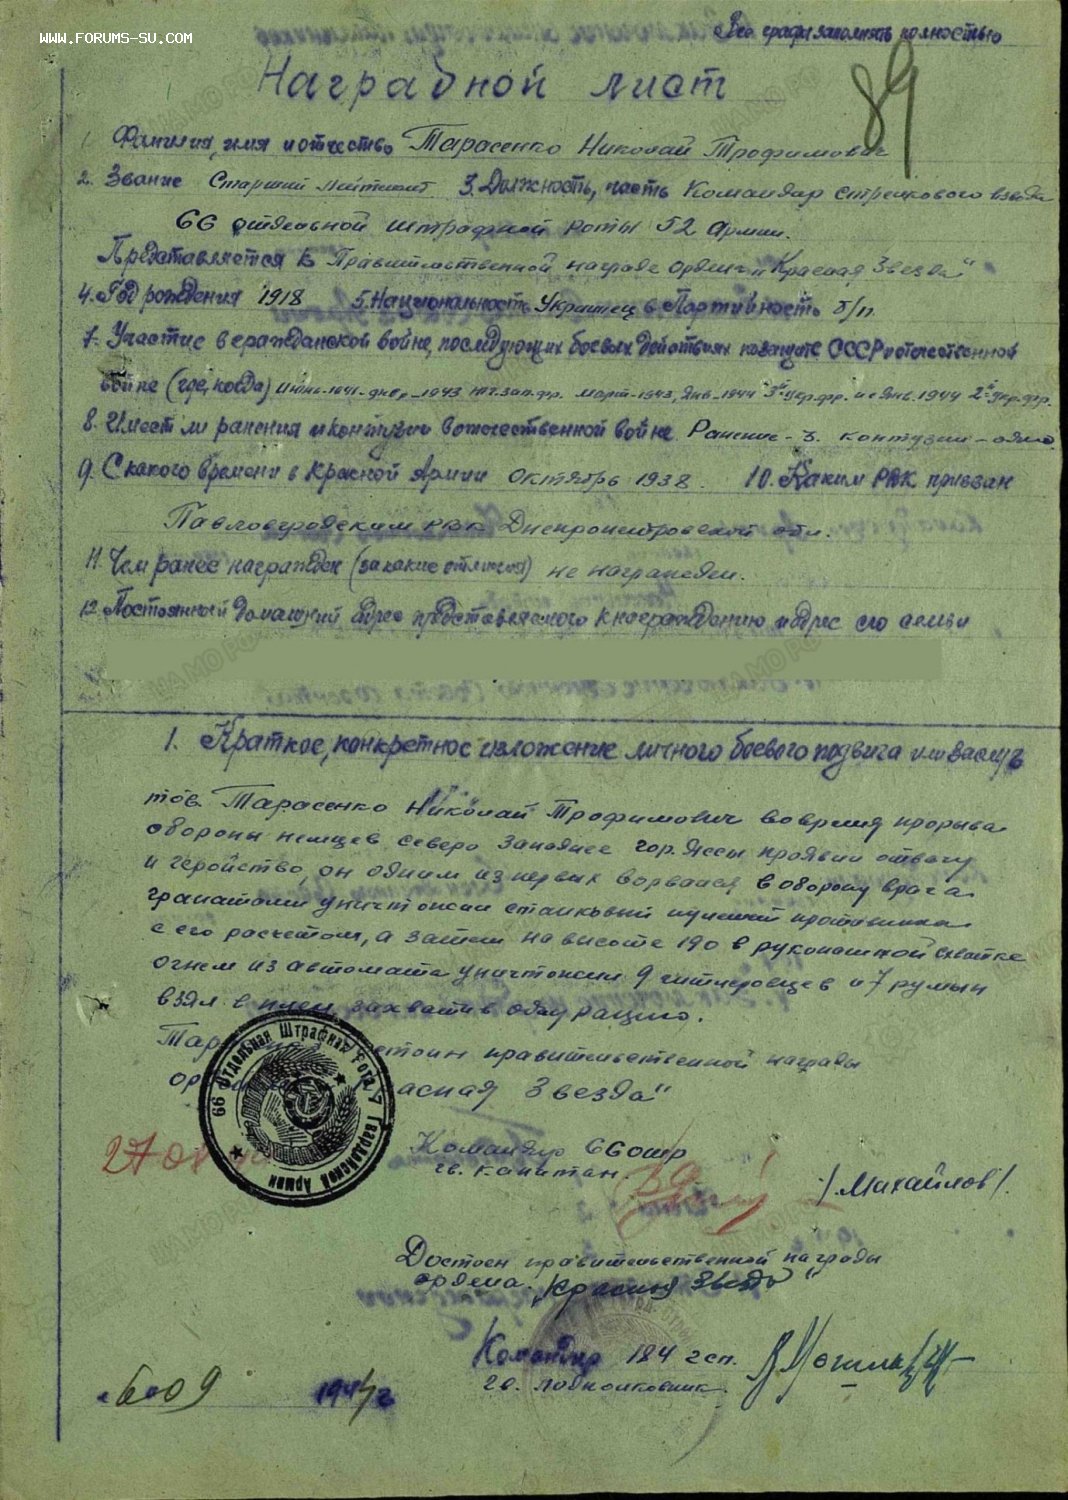 WWW.FORUMS-SU.COM
Все графы заполнять полностью
89
Наградной лист
1. Фамилия, имя и отчество Тарасенко Николай Трофимович
2. Звание Старший лейтенант 3. Должность, часть Командир стрелкового взвода
66 отдельной штрафной роты 52 Армии.
Представляется к Правительственной награде орден „Красная Звезда"
4. Год рождения 1918 5. Национальность Украинец 6 Партийность б/п
7. Участие в гражданской войне, последующих боевых действиях по защите СССР и отечественной
войне (где, когда) 1943 юг. зап. фр. март-1943, Янв-1944 3й укр. фр. и с Янв. 1944 2й укр. фр.
8. Имеет ли ранения и контузии в отечественной войне Ранение - 3. контузии - одно
9. С какого времени в Красной Армии Октябрь 1938. 10. Каким РВК призван
Павлоградским РВК Днепропетровской обл.
11. Чем ранее награжден (за какие отличия) не награжден.
12. Постоянный домашний адрес представляемого к награждению и адрес его семьи
1. Краткое, конкретное изложение личного боевого подвига или заслуг
тов. Тарасенко Николай Трофимович во время прорыва
обороны немцев северо западнее гор. Яссы проявил отвагу
и геройство, он одним из первых ворвался в оборону врага
гранатами уничтожил станковый пулемет противника
с его расчетом, а затем на высоте 190 в рукопашной схватке
огнем из автомата уничтожил 9 гитлеровцев и 7 румын
взял в плен, захватив одну рацию.
Тар достоин правительственной награды
ор „Красная Звезда"
66 Отдельная Штрафная Рота 7 Гвардейской Армии
27
Командир 66 ошр
гв. капитан /Михайлов/.
Достоин правительственной награды
ордена „Красная Звезда"
Командир 184 гсп.
гв. подполковник.
6.09 1944 г